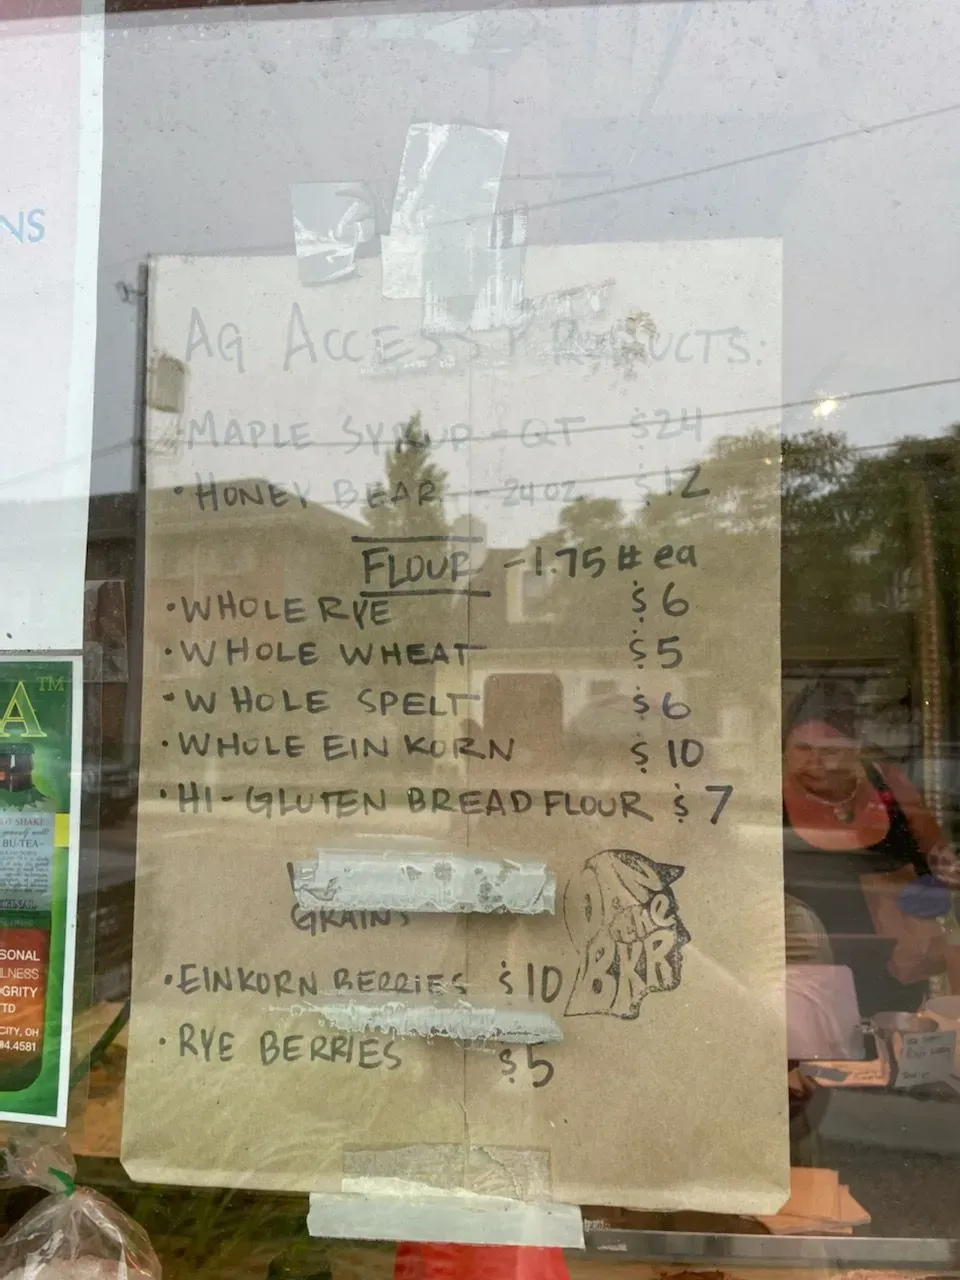 NS
AG ACCESS PRODUCTS:
·MAPLE SYRUP - QT $24
·HONEY BEAR - 24 OZ $12
FLOUR -1.75 # ea
·WHOLE RYE $6
·WHOLE WHEAT $5
·WHOLE SPELT $6
·WHOLE EINKORN $10
·HI-GLUTEN BREAD FLOUR $7
GRAINS
·EINKORN BERRIES $10
·RYE BERRIES $5
DAN
the
BKR
A™
BU-TEA
SONAL
LNESS
GRITY
TD
CITY, OH
4.4581